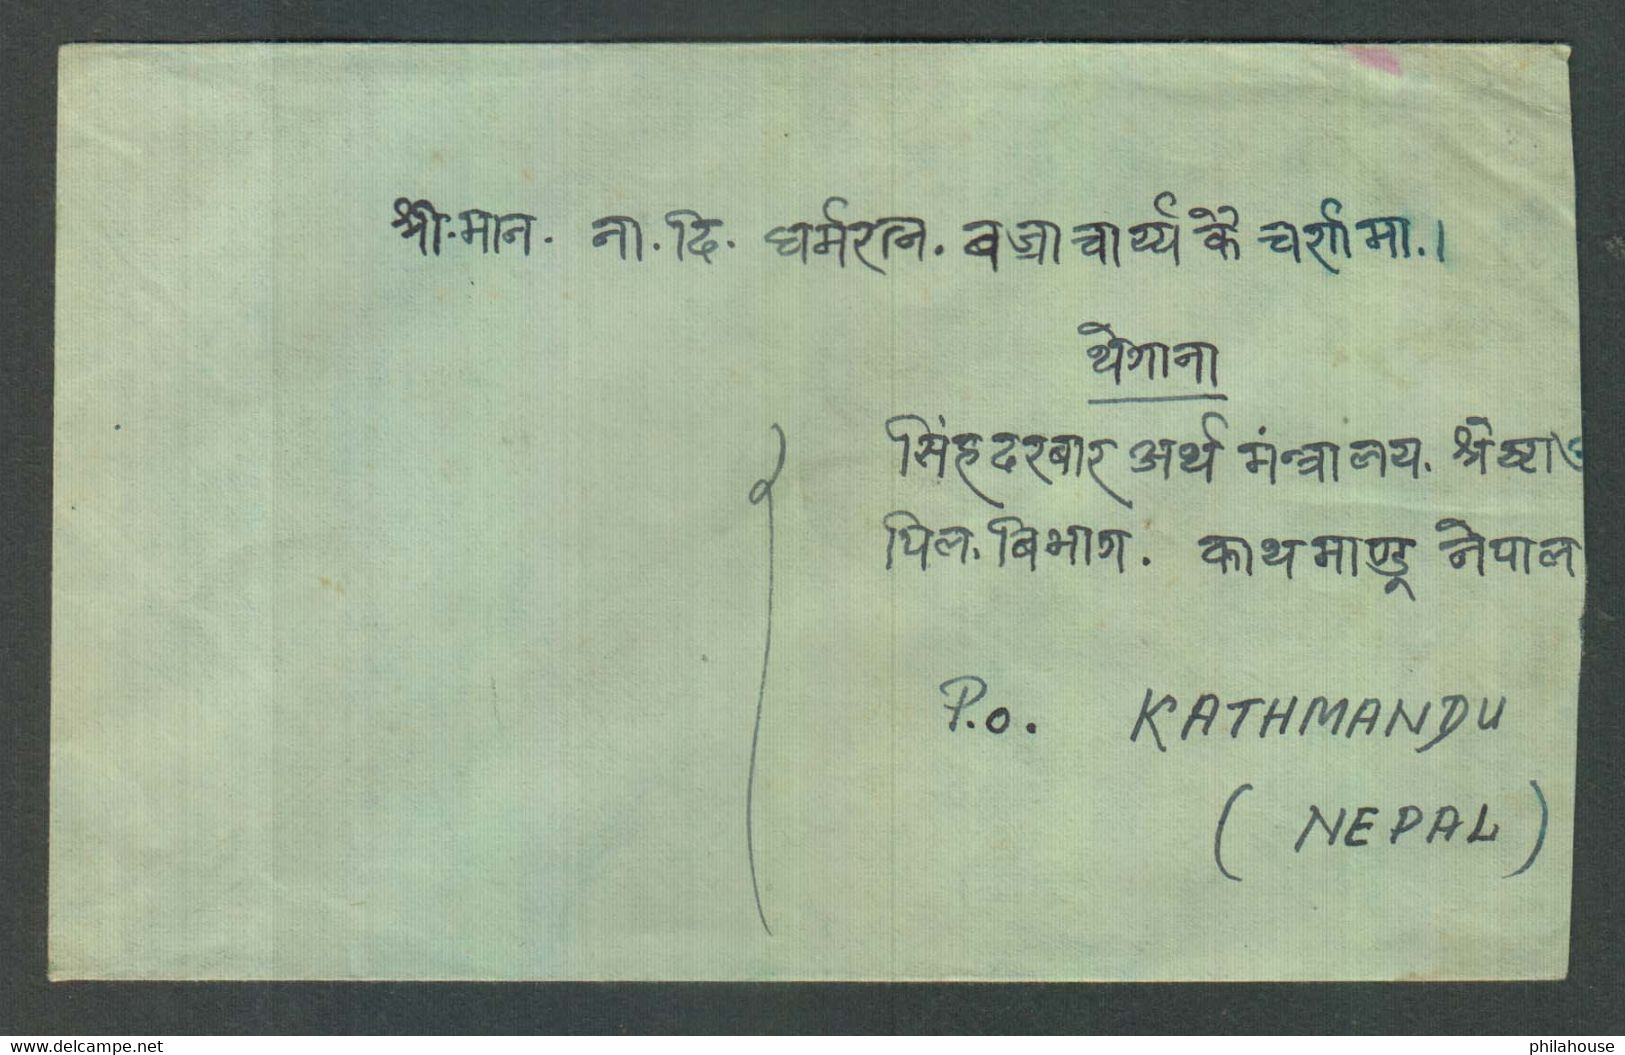 श्री.मान. ना.दि. धर्मरत्न. बज्राचार्य्य के चर्णमा.।
थेगाना
सिंहदरबार अर्थ मंन्त्रालय. श्रेष्टा
पिल.बिभाग. काथमाण्डू नेपाल
P.O. KATHMANDU
(NEPAL)
www.delcampe.net
philahouse